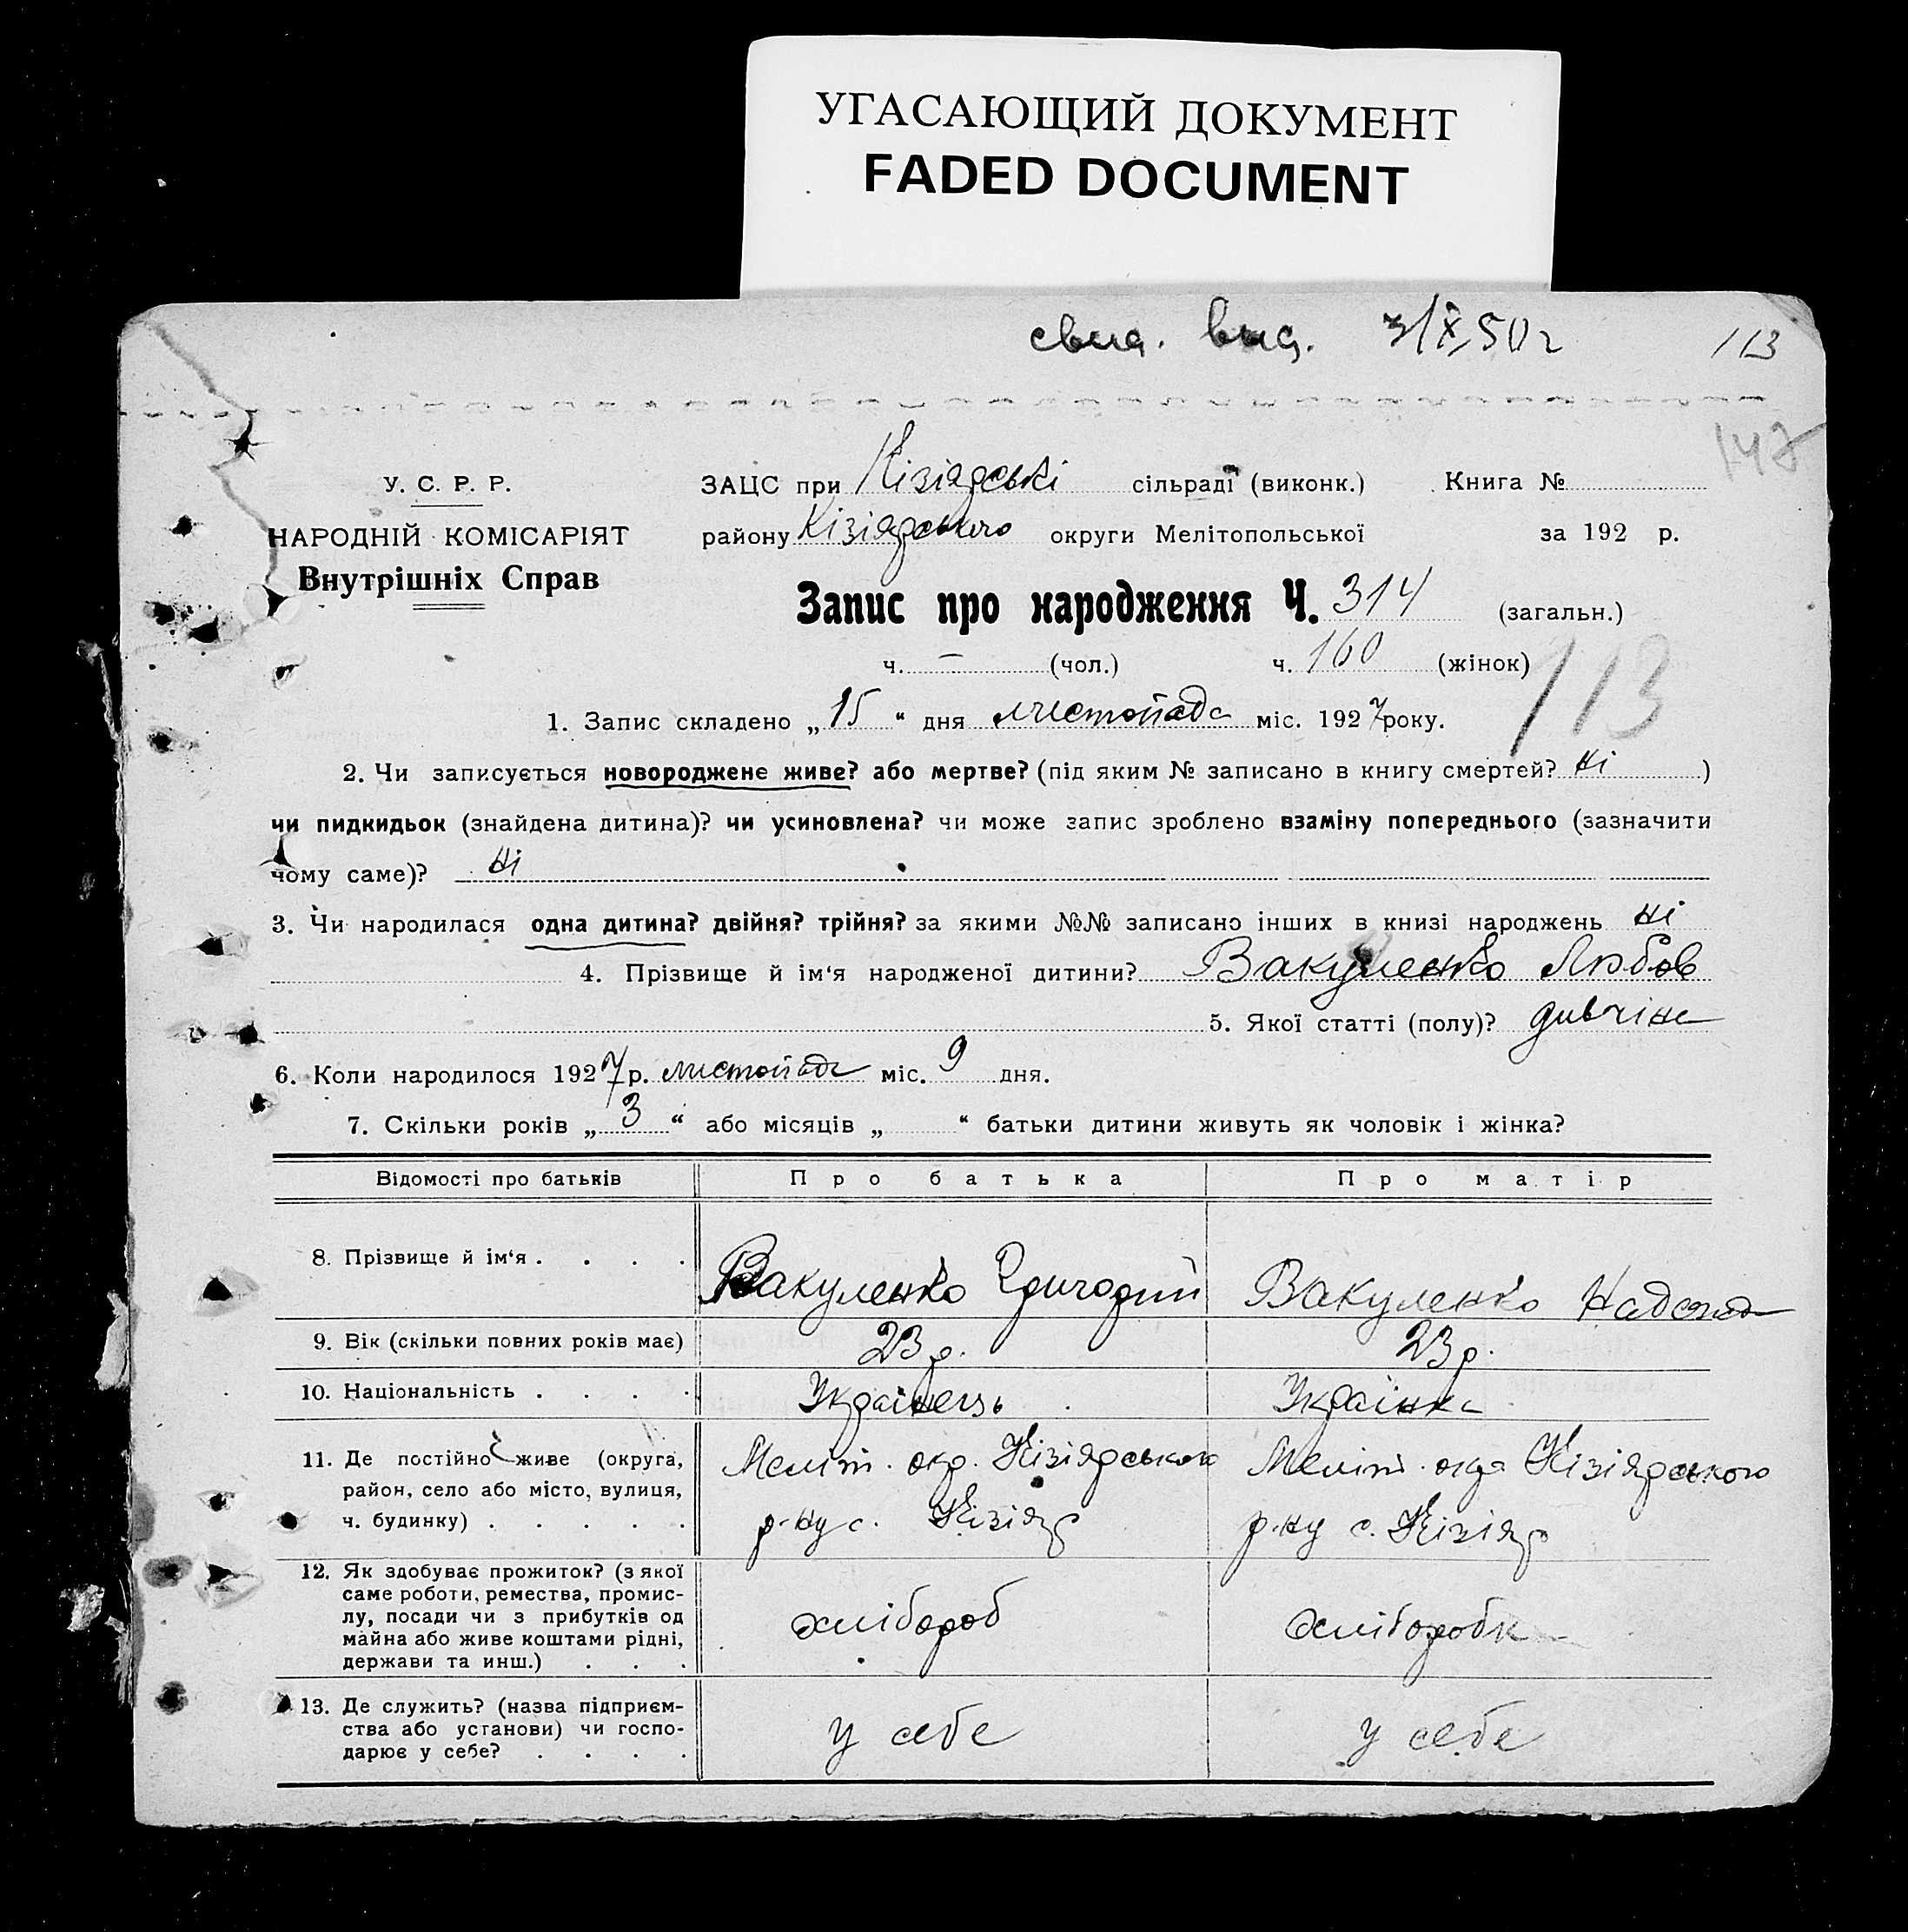 УГАСАЮЩИЙ ДОКУМЕНТ
FADED DOCUMENT
свид. выд. 3/X,50г 113
147
У. С. Р. Р. ЗАЦС при Кізіярські сільраді (виконк.) Книга №
НАРОДНІЙ КОМІСАРІЯТ району Кізіярського округи Мелітопольської за 192 р.
Внутрішніх Справ
Запис про народження Ч. 314 (загальн.)
ч. — (чол.) ч. 160 (жінок)
113
1. Запис складено „ 15 “ дня листопада міс. 1927 року.
2. Чи записується новороджене живе? або мертве? (під яким № записано в книгу смертей? ні )
чи пидкидьок (знайдена дитина)? чи усиновлена? чи може запис зроблено взаміну попереднього (зазначити
чому саме)? ні
3. Чи народилася одна дитина? двійня? трійня? за якими №№ записано інших в книзі народжень ні
4. Прізвище й ім‘я народженої дитини? Вакуленко Любов
5. Якої статті (полу)? дивчіна
6. Коли народилося 1927 р. листопада міс. 9 дня.
7. Скільки років „ 3 “ або місяців „ “ батьки дитини живуть як чоловік і жінка?
Відомості про батьків Про батька Про матір
8. Прізвище й ім‘я . . . . Вакуленко Григорий Вакуленко Надежда
9. Вік (скільки повних років має) 23 р. 23 р.
10. Національність . . . . Українець Українка
11. Де постійно живе (округа, Меліт. окр. Кізіярського Меліт. окр Кізіярського
район, село або місто, вулиця,
ч. будинку) . . . . . р-ну с. Кізіяр р-ну с. Кізіяр
12. Як здобуває прожиток? (з якої
саме роботи, ремества, промис-
лу, посади чи з прибутків од хлібороб хліборобка
майна або живе коштами рідні,
держави та инш.) . . .
13. Де служить? (назва підприєм-
ства або установи) чи госпо- у себе у себе
дарює у себе? . . . .